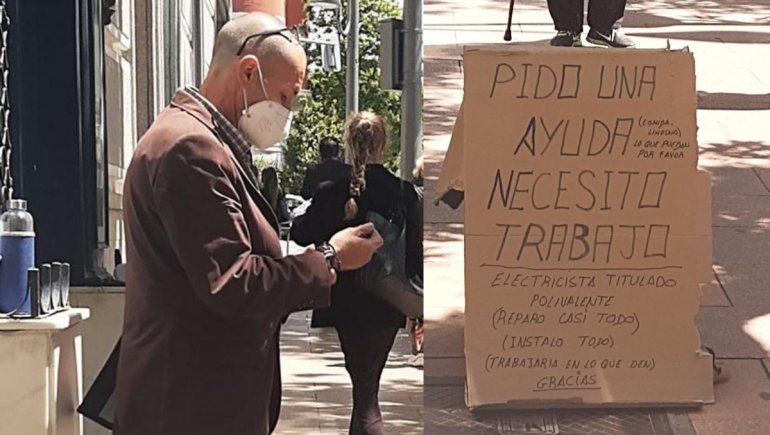 PIDO UNA
AYUDA (COMIDA, LIMOSNA) LO QUE PUEDAN POR FAVOR
NECESITO
TRABAJO
ELECTRICISTA TITULADO
POLIVALENTE
(REPARO CASI TODO)
(INSTALO TODO)
(TRABAJARIA EN LO QUE DEN)
GRACIAS